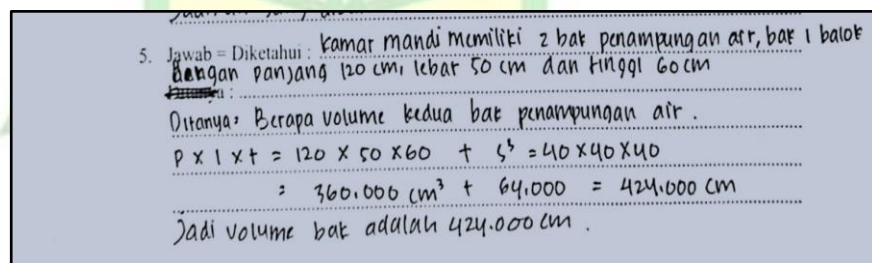 5. Jawab = Diketahui : kamar mandi memiliki 2 bak penampungan air, bak 1 balok
dengan panjang 120 cm, lebar 50 cm dan tinggi 60 cm
Ditanya: Berapa volume kedua bak penampungan air.
P x l x t = 120 x 50 x 60 + s³ = 40 x 40 x 40
= 360.000 cm³ + 64.000 = 424.000 cm
Jadi volume bak adalah 424.000 cm.